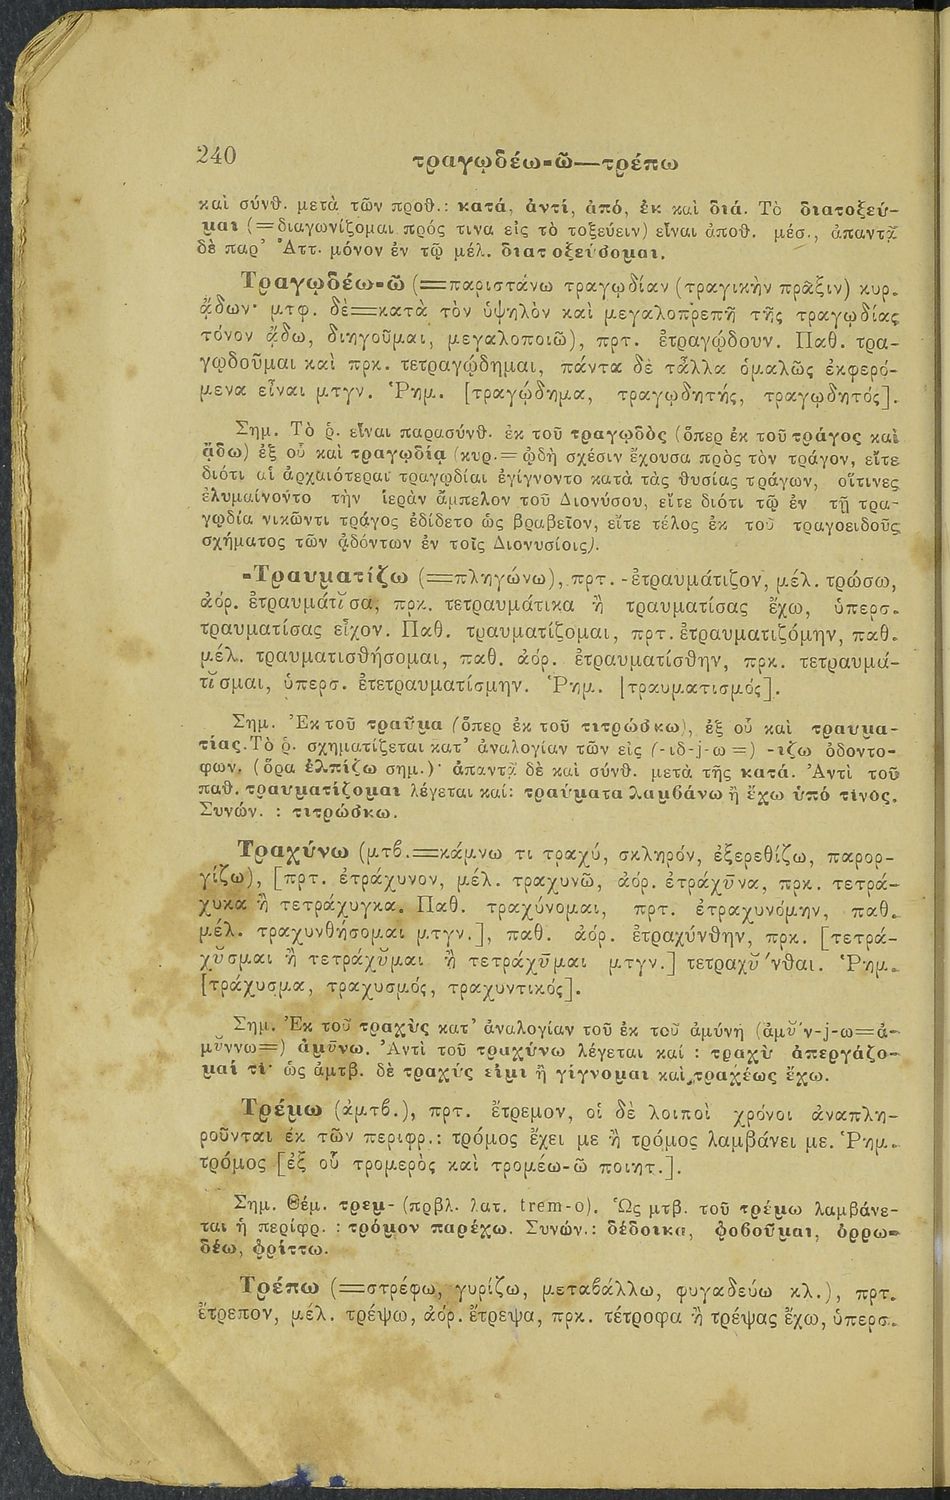 240
τραγῳδέω-ῶ—τρέπω
καὶ σύνθ. μετὰ τῶν προθ.: κατά, ἀντί, ἀπό, ἐκ καὶ διά. Τὸ διατοξεύ-
μαι (=διαγωνίζομαι πρός τινα εἰς τὸ τοξεύειν) εἶναι ἀποθ. μέσ., ἀπαντᾷ
δὲ παρ' Ἀττ. μόνον ἐν τῷ μέλ. διατοξεύσομαι.
Τραγῳδέω-ῶ (=παριστάνω τραγῳδίαν (τραγικὴν πρᾶξιν) κυρ.
ᾄδων· μτφ. δὲ=κατὰ τὸν ὑψηλὸν καὶ μεγαλοπρεπῆ τῆς τραγῳδίας
τόνον ᾄδω, διηγοῦμαι, μεγαλοποιῶ), πρτ. ἐτραγῴδουν. Παθ. τρα-
γῳδοῦμαι καὶ πρκ. τετραγῴδημαι, πάντα δὲ τἆλλα ὁμαλῶς ἐκφερό-
μενα εἶναι μτγν. Ῥημ. [τραγῴδημα, τραγῳδητής, τραγῳδητός].
Σημ. Τὸ ῥ. εἶναι παρασύνθ. ἐκ τοῦ τραγῳδὸς (ὅπερ ἐκ τοῦ τράγος καὶ
ᾄδω) ἐξ οὗ καὶ τραγῳδία (κυρ.=ᾠδὴ σχέσιν ἔχουσα πρὸς τὸν τράγον, εἴτε
διότι αἱ ἀρχαιότεραι τραγῳδίαι ἐγίγνοντο κατὰ τὰς θυσίας τράγων, οἵτινες
ἐλυμαίνοντο τὴν ἱερὰν ἄμπελον τοῦ Διονύσου, εἴτε διότι τῷ ἐν τῇ τρα-
γῳδίᾳ νικῶντι τράγος ἐδίδετο ὡς βραβεῖον, εἴτε τέλος ἐκ τοῦ τραγοειδοῦς
σχήματος τῶν ᾀδόντων ἐν τοῖς Διονυσίοις).
-Τραυματίζω (=πληγώνω), πρτ. -ἐτραυμάτιζον, μέλ. τρώσω,
ἀόρ. ἐτραυμάτῐσα, πρκ. τετραυμάτικα ἢ τραυματίσας ἔχω, ὑπερσ.
τραυματίσας εἶχον. Παθ. τραυματίζομαι, πρτ. ἐτραυματιζόμην, παθ.
μέλ. τραυματισθήσομαι, παθ. ἀόρ. ἐτραυματίσθην, πρκ. τετραυμά-
τῐσμαι, ὑπερσ. ἐτετραυματίσμην. Ῥημ. [τραυματισμός].
Σημ. Ἐκ τοῦ τραῦμα (ὅπερ ἐκ τοῦ τιτρώσκω), ἐξ οὗ καὶ τραυμα-
τίας. Τὸ ῥ. σχηματίζεται κατ' ἀναλογίαν τῶν εἰς (-ιδ-j-ω=) -ιζω ὀδοντο-
φων. (ὅρα ἐλπίζω σημ.)· ἀπαντᾷ δὲ καὶ σύνθ. μετὰ τῆς κατά. Ἀντὶ τοῦ
παθ. τραυματίζομαι λέγεται καί: τραύματα λαμβάνω ἢ ἔχω ὑπό τινος.
Συνών. : τιτρώσκω.
Τραχύνω (μτβ.=κάμνω τι τραχύ, σκληρόν, ἐξερεθίζω, παρορ-
γίζω), [πρτ. ἐτράχυνον, μέλ. τραχυνῶ, ἀόρ. ἐτράχῡνα, πρκ. τετρά-
χυκα ἢ τετράχυγκα. Παθ. τραχύνομαι, πρτ. ἐτραχυνόμην, παθ.
μέλ. τραχυνθήσομαι μτγν.], παθ. ἀόρ. ἐτραχύνθην, πρκ. [τετρά-
χῡσμαι ἢ τετράχῡμαι ἢ τετράχῡμαι μτγν.] τετραχῡ́νθαι. Ῥημ.
[τράχυσμα, τραχυσμός, τραχυντικός].
Σημ. Ἐκ τοῦ τραχὺς κατ' ἀναλογίαν τοῦ ἐκ τοῦ ἀμύνη (ἀμῠ́ν-j-ω=ἀ-
μύννω=) ἀμῡνω. Ἀντὶ τοῦ τραχύνω λέγεται καί : τραχὺ ἀπεργάζο-
μαί τι· ὡς ἀμτβ. δὲ τραχύς εἰμι ἢ γίγνομαι καὶ τραχέως ἔχω.
Τρέμω (ἀμτβ.), πρτ. ἔτρεμον, οἱ δὲ λοιποὶ χρόνοι ἀναπλη-
ροῦνται ἐκ τῶν περιφρ.: τρόμος ἔχει με ἢ τρόμος λαμβάνει με. Ῥημ.
τρόμος [ἐξ οὗ τρομερὸς καὶ τρομέω-ῶ ποιητ.].
Σημ. Θέμ. τρεμ- (πρβλ. λατ. trem-o). Ὡς μτβ. τοῦ τρέμω λαμβάνε-
ται ἡ περίφρ. : τρόμον παρέχω. Συνών.: δέδοικα, φοβοῦμαι, ὀρρω-
δέω, φρίττω.
Τρέπω (=στρέφω, γυρίζω, μεταβάλλω, φυγαδεύω κλ.), πρτ.
ἔτρεπον, μέλ. τρέψω, ἀόρ. ἔτρεψα, πρκ. τέτροφα ἢ τρέψας ἔχω, ὑπερσ.